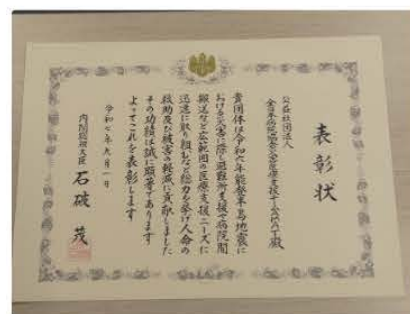 表彰状
公益社団法人
全日本病院協会災害医療支援チームAMAT殿
貴団体は令和六年能登半島地震に
おける災害に際し避難所支援や病院間
搬送など広範囲の医療支援ニーズに
迅速に取り組むなど総力を挙げ人命の
救助及び被害の軽減に貢献しました
その功績は誠に顕著であります
よってこれを表彰します
令和七年九月一日
内閣総理大臣 石破茂